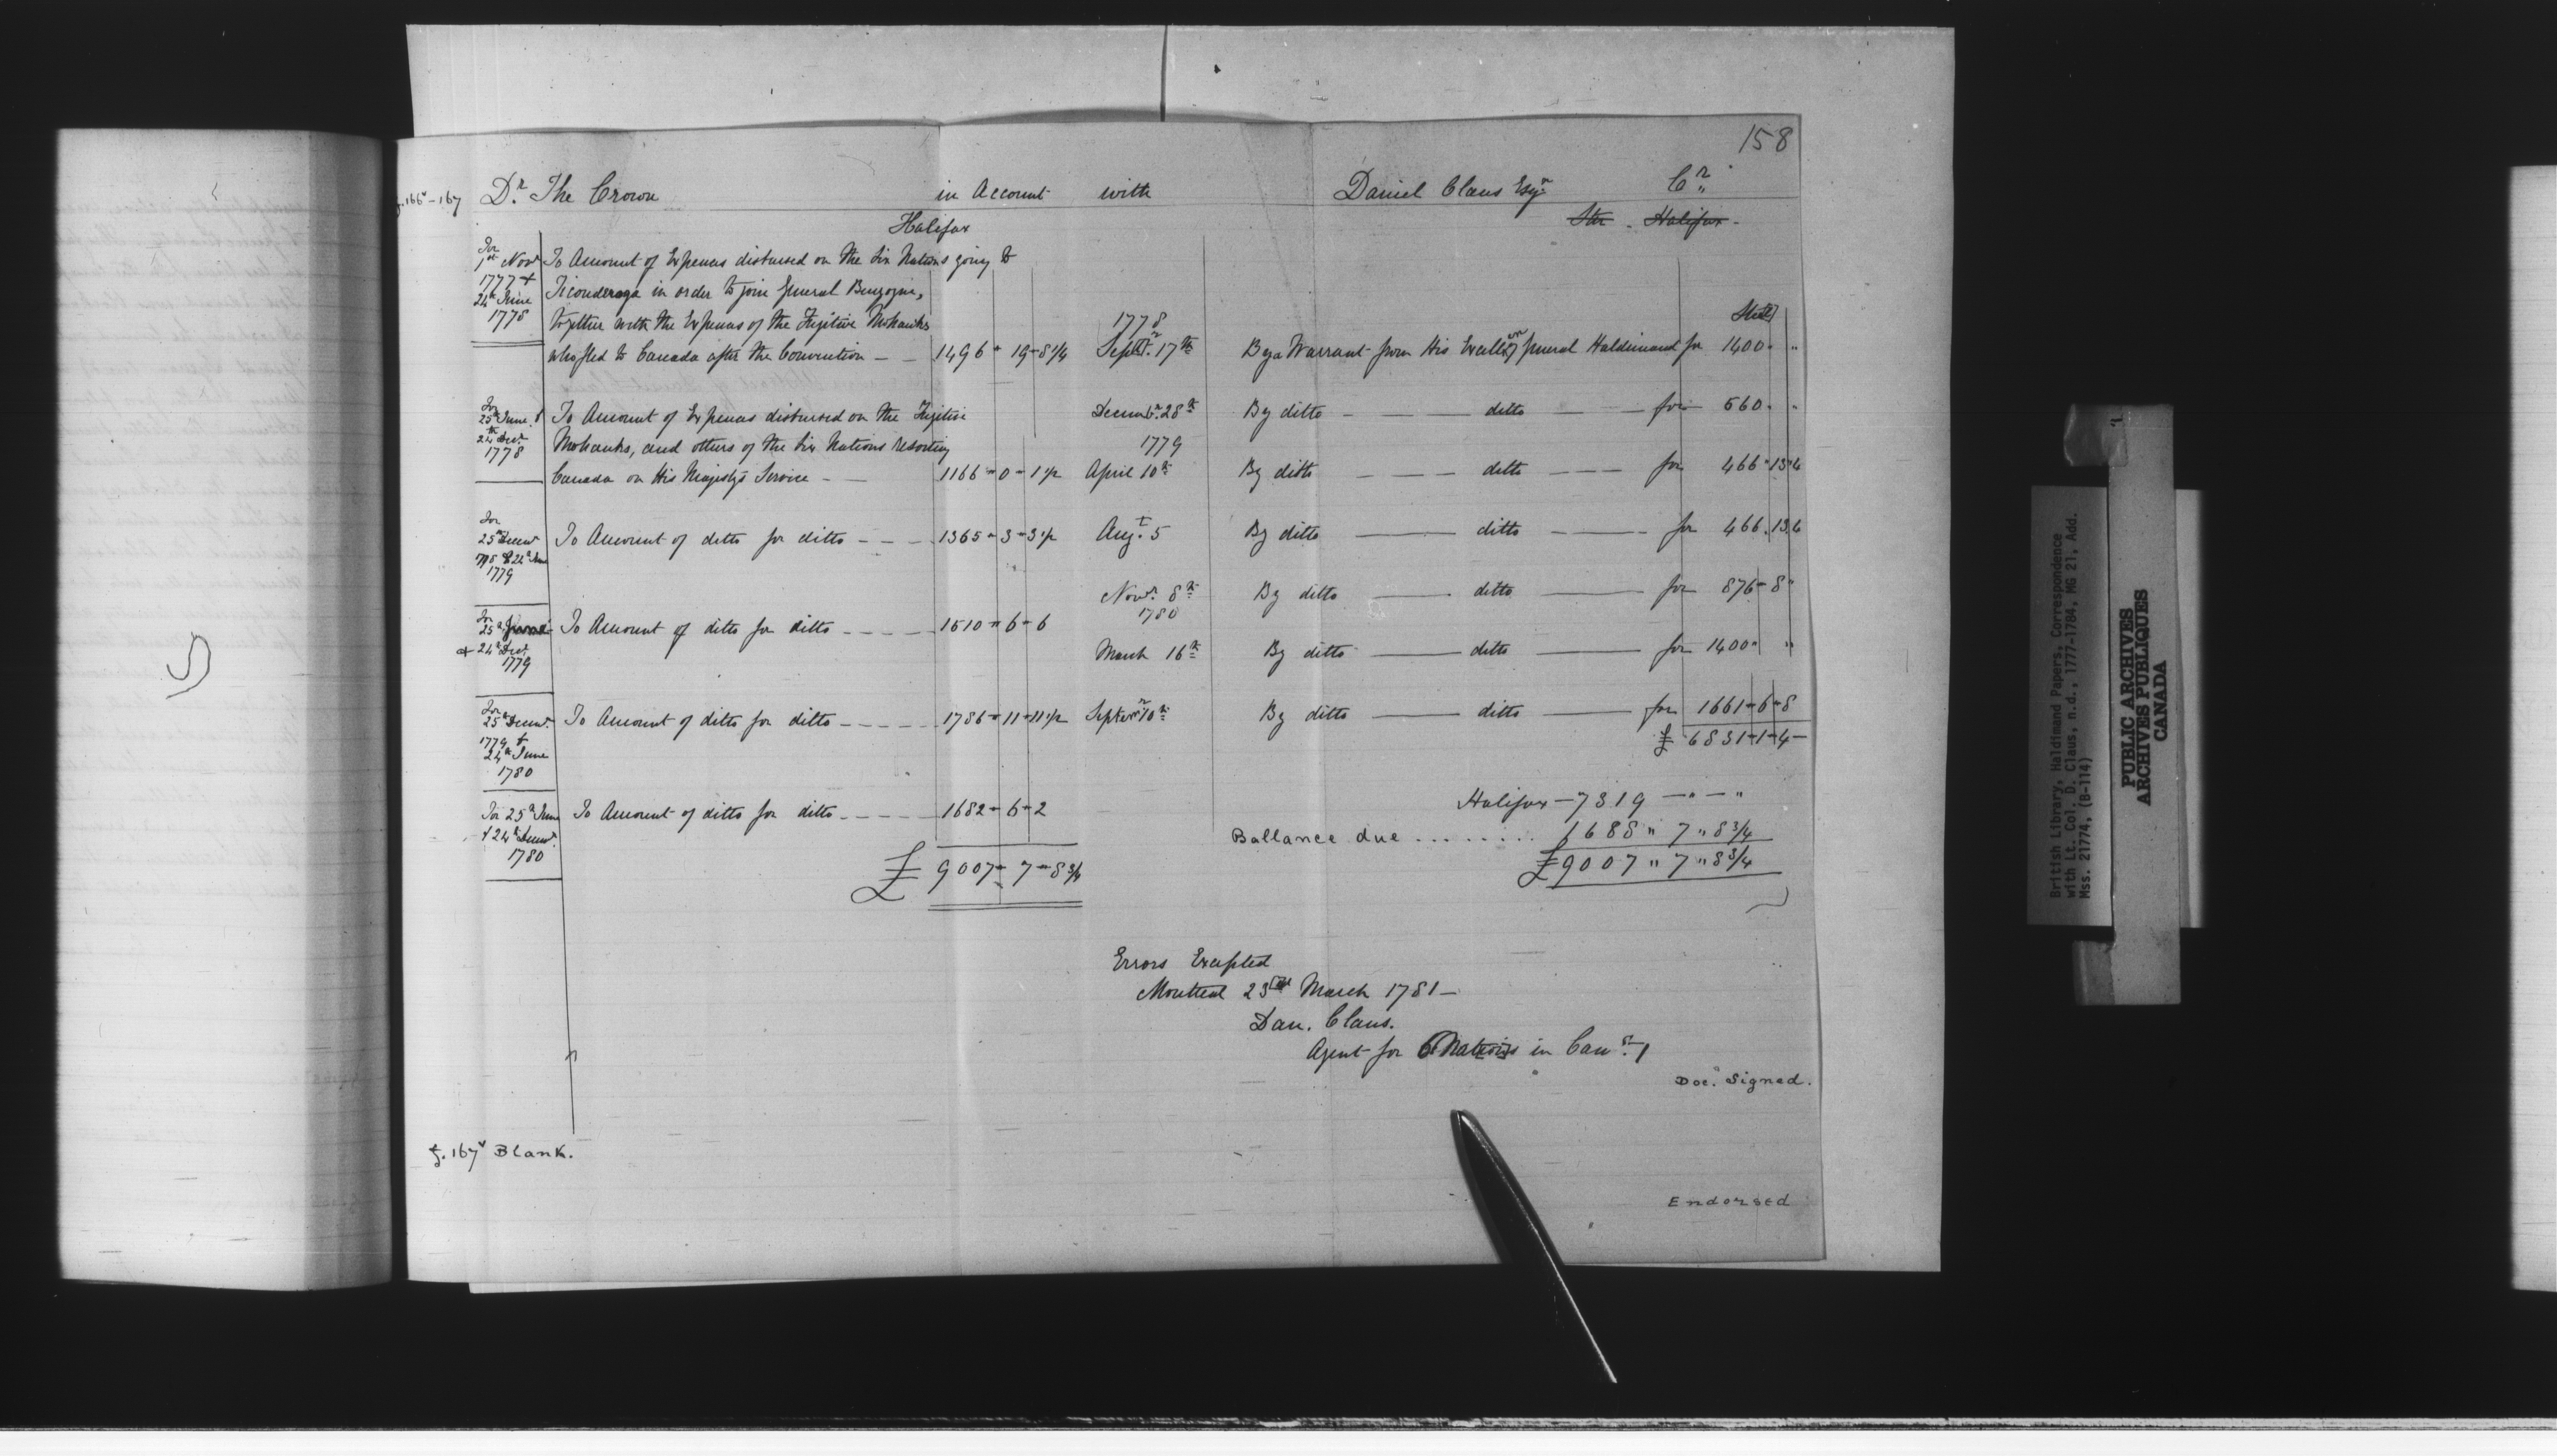 158
f. 166v-167 Dr. The Crown in Account with Daniel Claus Esqr. Cr.
Halifax Ster. Halifax
For 1st Novr
1777 &
24th June
1778
To Amount of Expences disbursed on the Six Nations going to
Ticonderoga in order to join General Burgoyne,
together with the Expences of the Fugitive Mohawks
who fled to Canada after the Convention — — 1496 " 19 " 8 1/4
For
25th June &
24th Decr.
1778
To Amount of Expences disbursed on the Fugitive
Mohawks, and others of the Six Nations resorting
Canada on His Majestys Service — — 1166 " 0 " 1 1/2
For
25th Decemr
1778 & 24th June
1779
To Amount of ditto for ditto — — — 1365 " 3 " 3 1/2
For
25th June
& 24th Decr.
1779
To Amount of ditto for ditto — — — — 1510 " 6 " 6
For
25th Decemr.
1779 &
24th June
1780
To Amount of ditto for ditto — — — — 1786 " 11 " 11 1/2
For 25th June
& 24th Decemr.
1780
To Amount of ditto for ditto — — — — 1682 " 6 " 2
£ 9007 " 7 " 8 3/4
1778
Septr. 17th By a Warrant from His Excellcy General Haldimand for 1400 " "
Decembr. 28th By ditto — ditto — for 560 " "
1779
April 10th By ditto — — ditto — — for 466 " 13 " 4
Augt. 5 By ditto — ditto — for 466 " 13 " 4
Novr. 8th By ditto — ditto — for 876 " 8 "
1780
March 16th By ditto — ditto — for 1400 " "
Septemr 10th By ditto — ditto — for 1661 " 6 " 8
£ 6831 " 1 " 4
Halifax — 7319 — " — "
Ballance due ........ 1688 " 7 " 8 3/4
£ 9007 " 7 " 8 3/4
Errors Excepted
Montreal 23rd March 1781 —
Dan. Claus.
Agent for 6 Nations in Can
Doc. Signed.
f. 167v Blank.
Endorsed
British Library, Haldimand Papers, Correspondence
with Lt. Col. D. Claus, n.d., 1777-1784, MG 21, Add.
Mss. 21774, (B-114)
PUBLIC ARCHIVES
ARCHIVES PUBLIQUES
CANADA